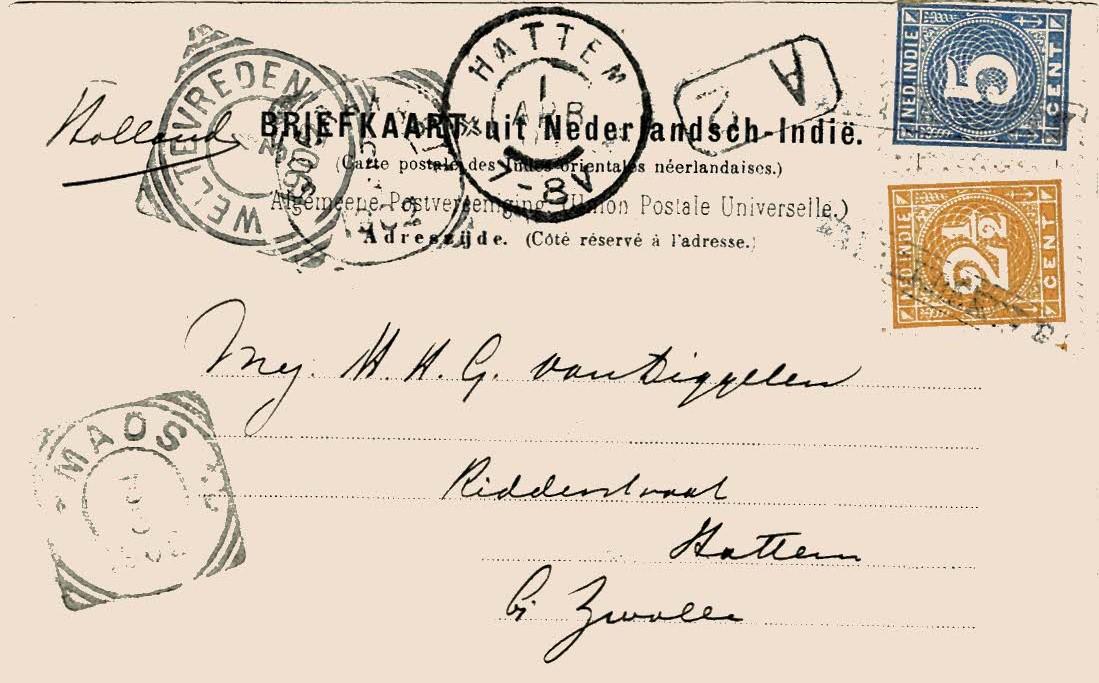 Holland
BRIEFKAART uit Nederlandsch-Indië.
(Carte postale des Indes orientales néerlandaises.)
Algemeene Postvereeniging (Union Postale Universelle.)
Adreszijde. (Côté réservé à l'adresse.)
WELTEVREDEN
HATTEM
1
ARR
7-8V
A
NED INDIE
5
CENT
NED INDIE
2½
CENT
Mej. H. H. G. van Diggelen
Ridderstraat
Hattem
bij Zwolle
MAOS